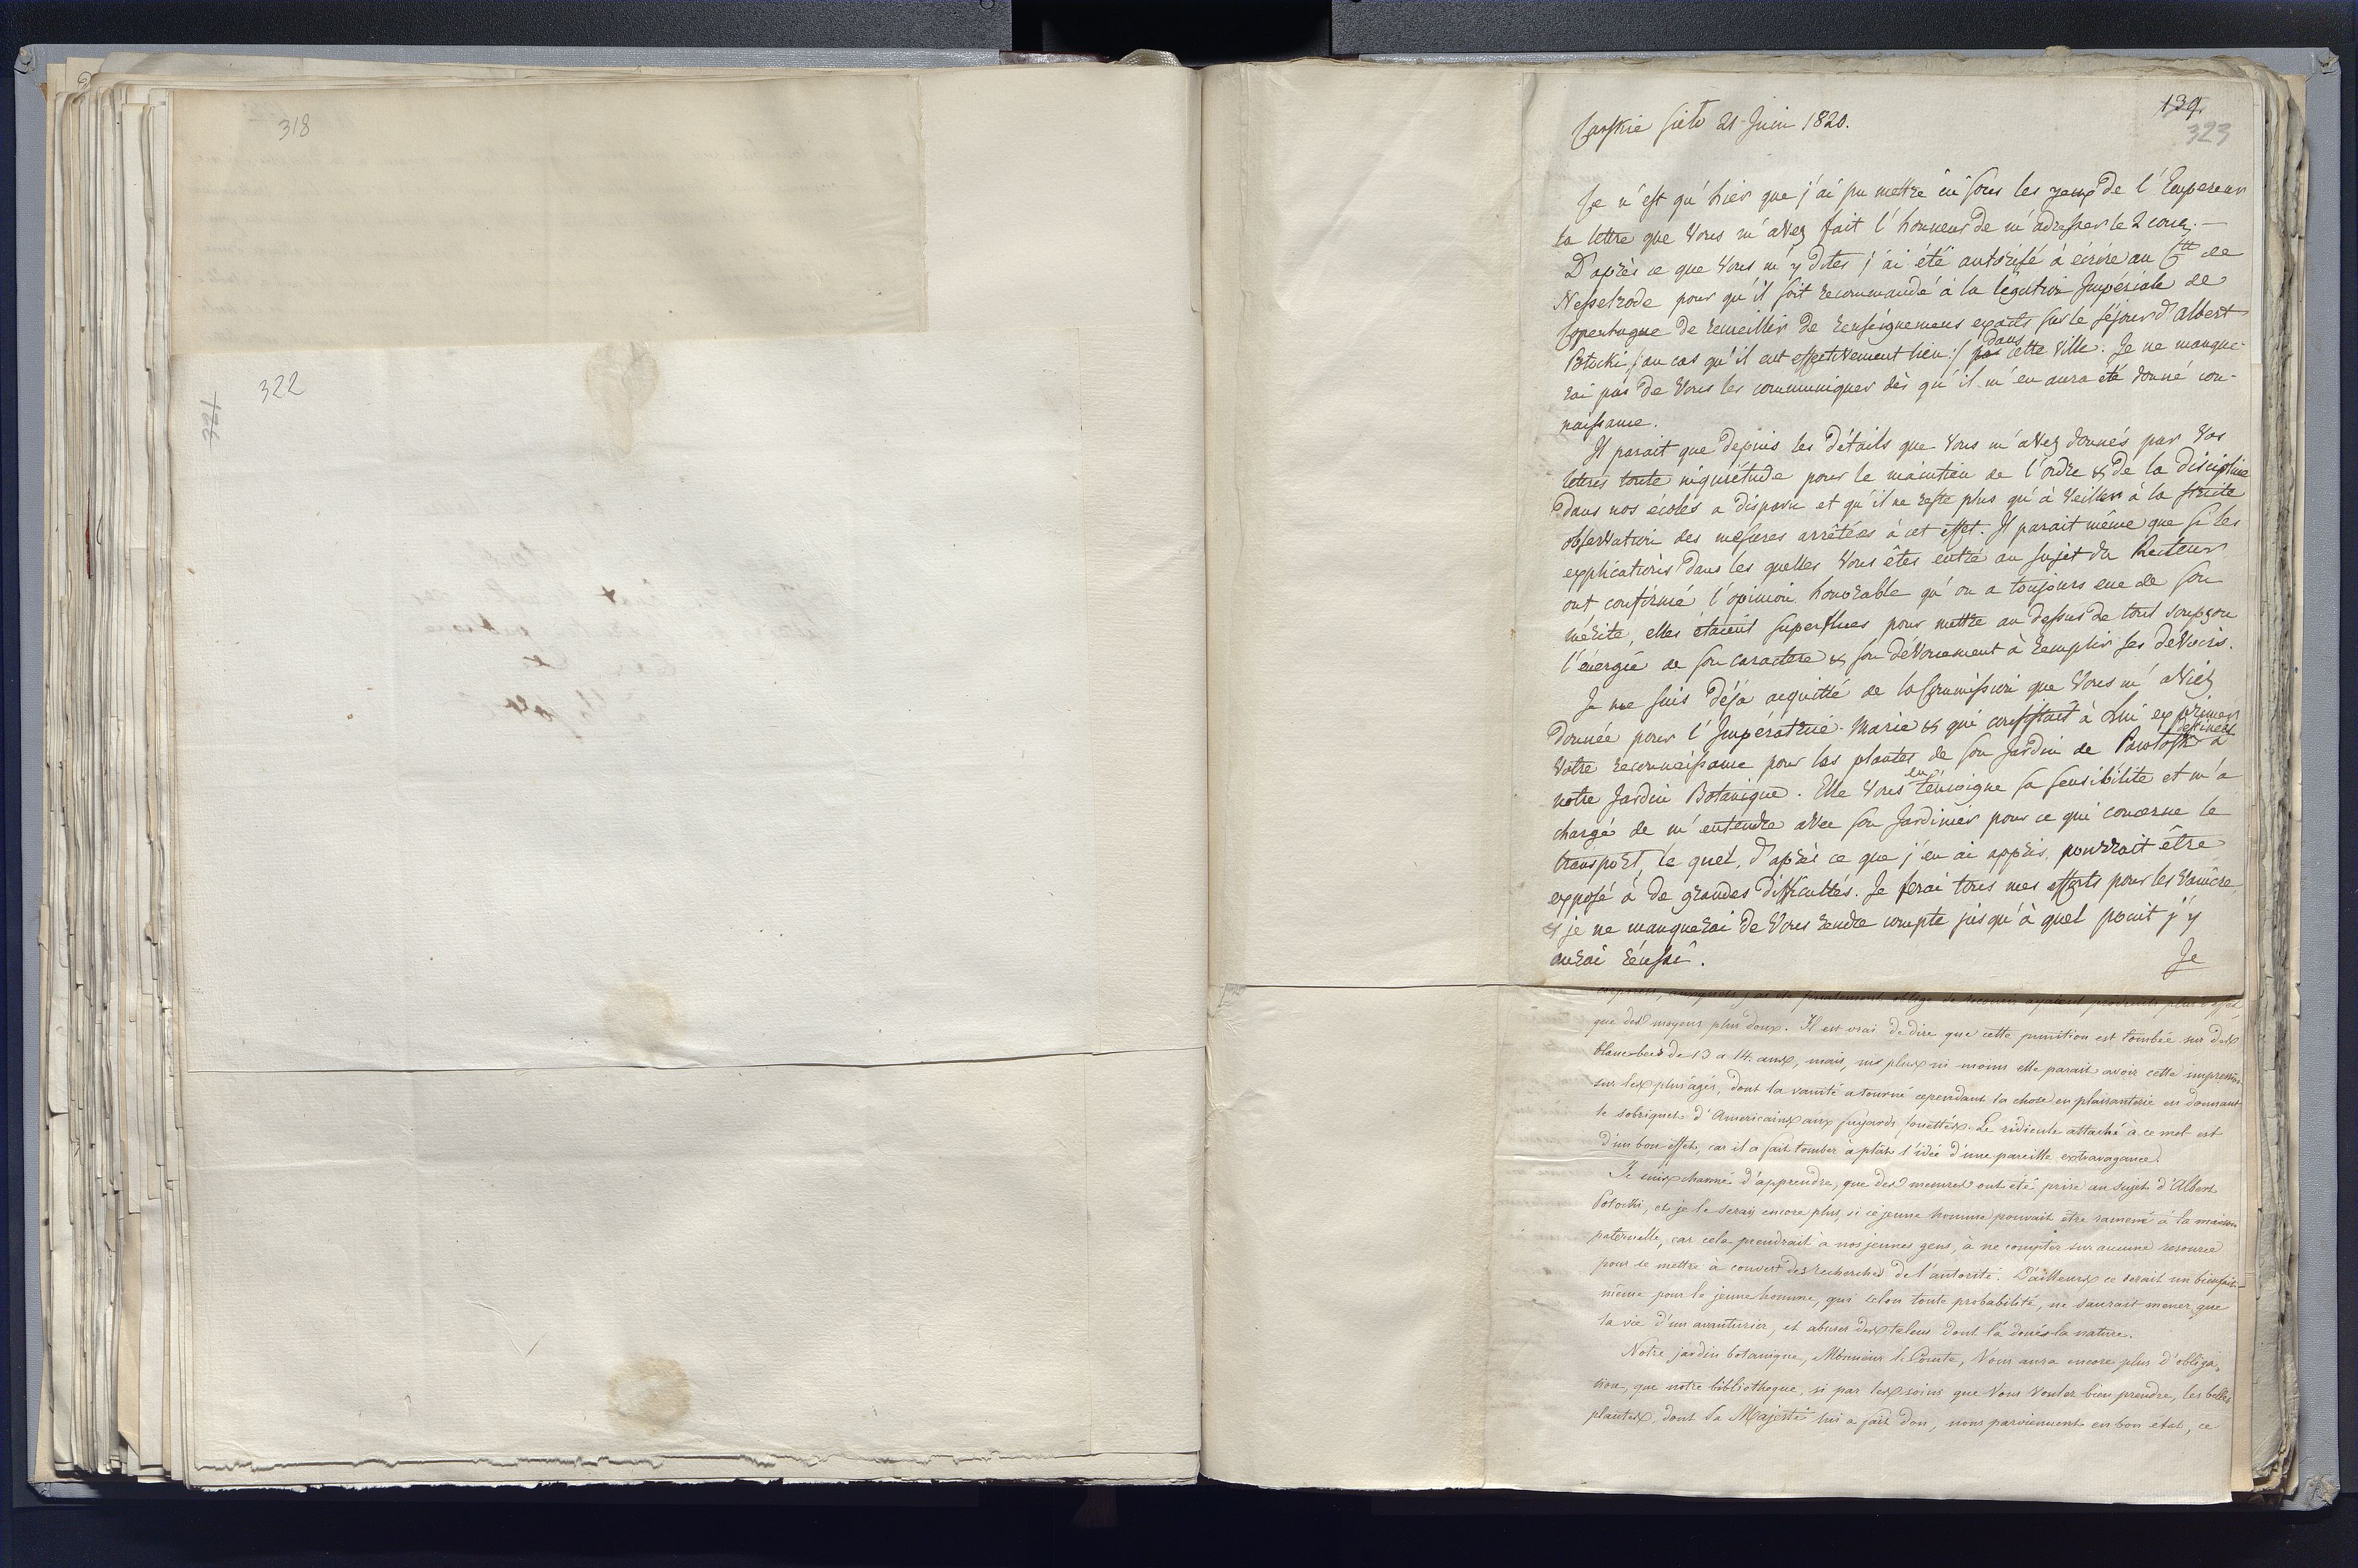 318
322
321
139.
323
Carskie Sieło 21 Juin 1820.
Ce n'est qu'hier que j'ai pu mettre sous les yeux de l'Empereur
la lettre que Vous m'avez fait l'honneur de m'adresser le 2 cour. —
D'après ce que Vous m'y dites j'ai été autorisé à écrire au Ctte de
Nesselrode pour qu'il soit recommandé à la légation Impériale de
Copenhague de recueillir de renseignemens exacts sur le séjour d'Albert
Potocki /:au cas qu'il eut effectivement lieu:/ dans cette ville. Je ne manque-
rai pas de Vous les communiquer dès qu'il m'en aura été donné con-
naissance.
Il parait que depuis les détails que Vous m'avez donnés par Vos
lettres toute inquiétude pour le maintien de l'ordre & de la discipline
dans nos écoles a disparu et qu'il ne reste plus qu'à veiller à la stricte
observation des mesures arrêtées à cet effet. Il parait même que si les
explications dans les quelles Vous êtes entré au sujet du Recteur
ont confirmé l'opinion honorable qu'on a toujours eue de son
mérite, elles étaient superflues pour mettre au dessus de tout soupçon
l'énergie de son caractere & son dévouement à remplir ses devoirs.
Je me suis déjà acquitté de la Commission que Vous m'aviez
donnée pour l'Impératrice Marie & qui consistait à Lui exprimer
Votre reconnaissance pour les plantes de son Jardin de Pawlofsk destinées à
notre Jardin Botanique. Elle Vous en témoigne sa sensibilité et m'a
chargé de m'entendre avec son Jardinier pour ce qui concerne le
transport, le quel, d'après ce que j'en ai appris, pourrait être
exposé à de grandes difficultés. Je ferai tous mes efforts pour les vaincre,
& je ne manquerai de Vous rendre compte jusqu'à quel point j'y
aurai réussi.
Je
que des moyens plus doux. Il est vrai de dire que cette punition est tombée sur des
blancs-becs de 13 a 14. ans, mais, ni plus ni moins elle parait avoir cette impression
sur les plus âgés, dont la vanité a tourné cependant la chose en plaisanterie en donnant
le sobriquet d'Americains aux fuyards fouettés. Le ridicule attaché à ce mot est
d'un bon effet, car il a fait tomber à plât l'idée d'une pareille extravagance.
Je suis charmé d'apprendre, que des mesures ont été prise au sujet d'Albert
Potocki, et je le serais encore plus, si ce jeune homme pouvait être ramené à la maison
paternelle, car cela prendrait à nos jeunes gens, à ne compter sur aucune resource
pour se mettre à couvert des recherches de l'autorité. D'ailleurs ce serait un bienfait
même pour le jeune homme, qui selon toute probabilité, ne saurait mener que
la vie d'un avanturier, et abuser des talens dont l'a doués la nature.
Notre jardin botanique, Monsieur le Comte, Vous aura encore plus d'obliga-
tion, que notre bibliotheque, si par les soins que Vous voulez bien prendre, les belles
plantes, dont Sa Majesté lui a fait don, nous parviennent en bon etat, ce